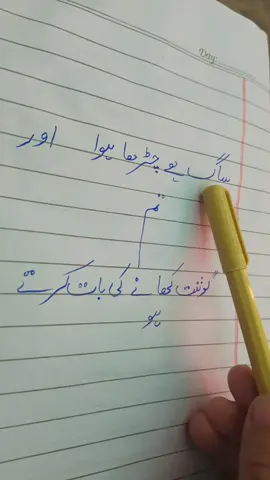 Day:
ساگ ہے چڑھا ہوا اور
تم
گوشت کھانے کی بات کرتے
ہو